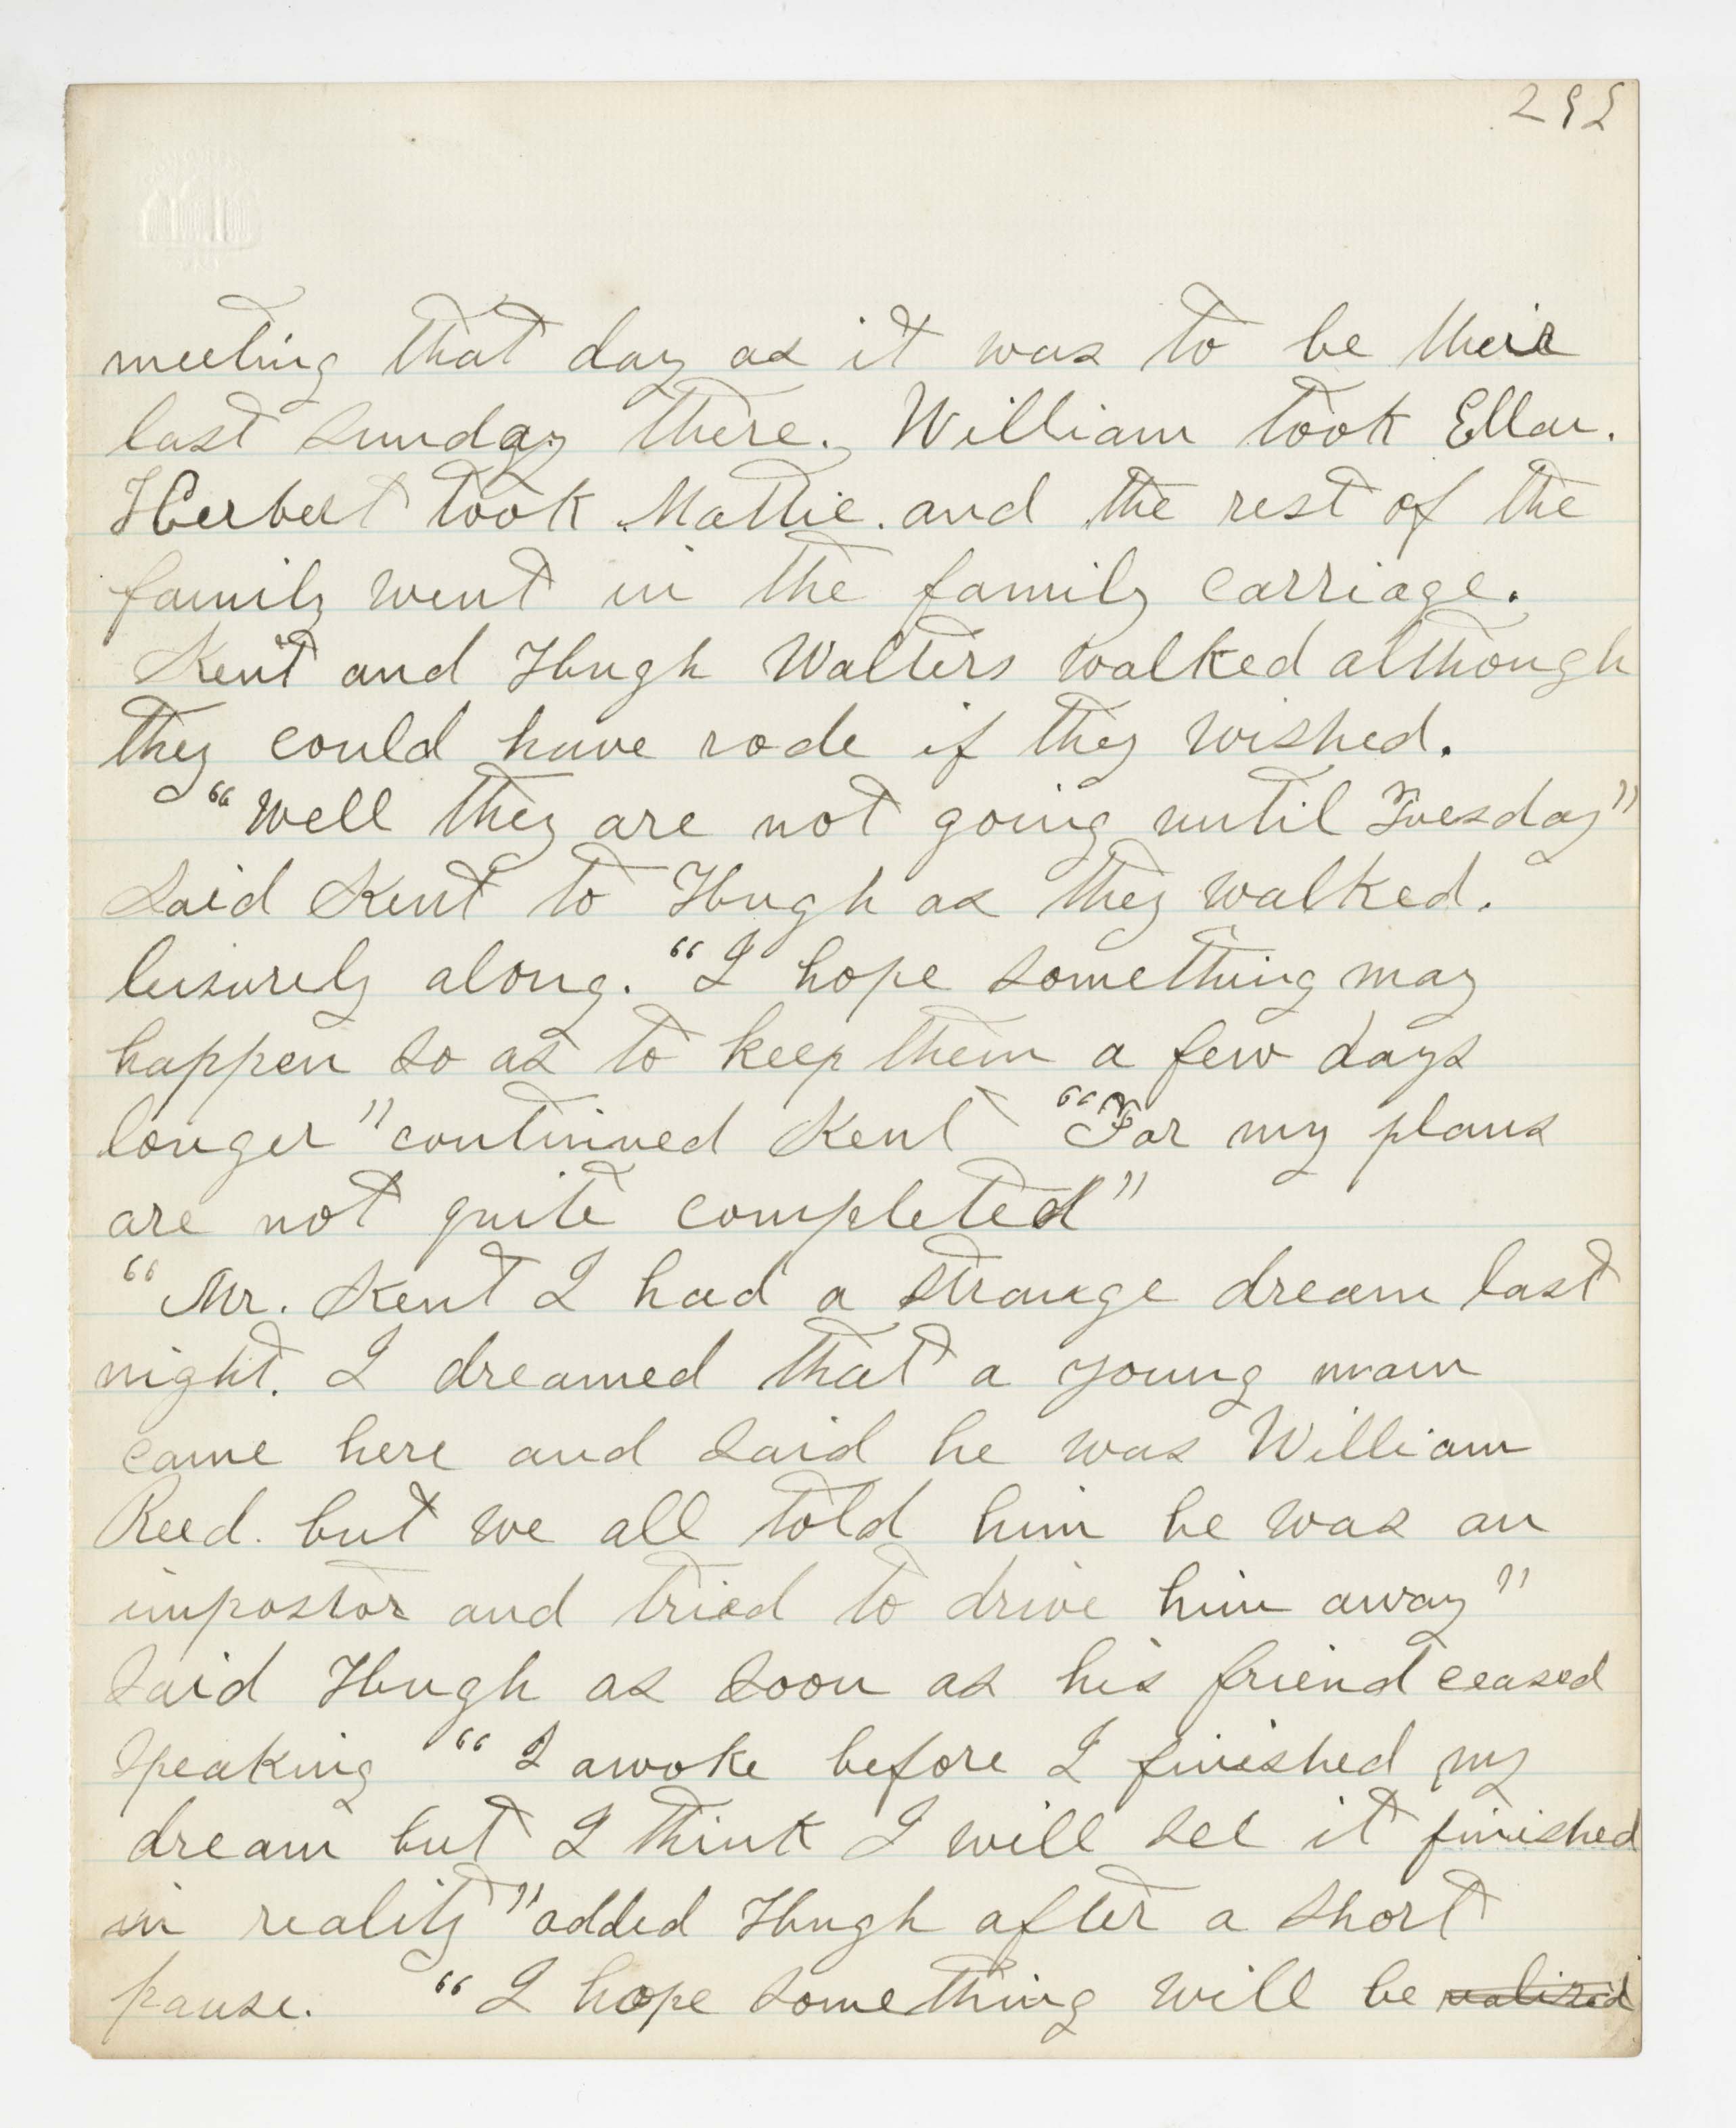 292
meeting that day as it was to be their
last Sunday there. William took Ella.
Herbert took Mattie. and the rest of the
family went in the family carriage.
Kent and Hugh Walters walked although
they could have rode if they wished.
"Well they are not going until Tuesday"
Said Kent to Hugh as they walked.
leisurely along. "I hope something may
happen so as to keep them a few days
longer" continued Kent "For my plans
are not quite completed"
"Mr. Kent I had a strange dream last
night. I dreamed that a young man
came here and said he was William
Reed. but we all told him he was an
impostor and tried to drive him away"
Said Hugh as soon as his friend ceased
Speaking "I awoke before I finished my
dream but I think I will see it finished
in reality" added Hugh after a short
pause. "I hope something will be realized